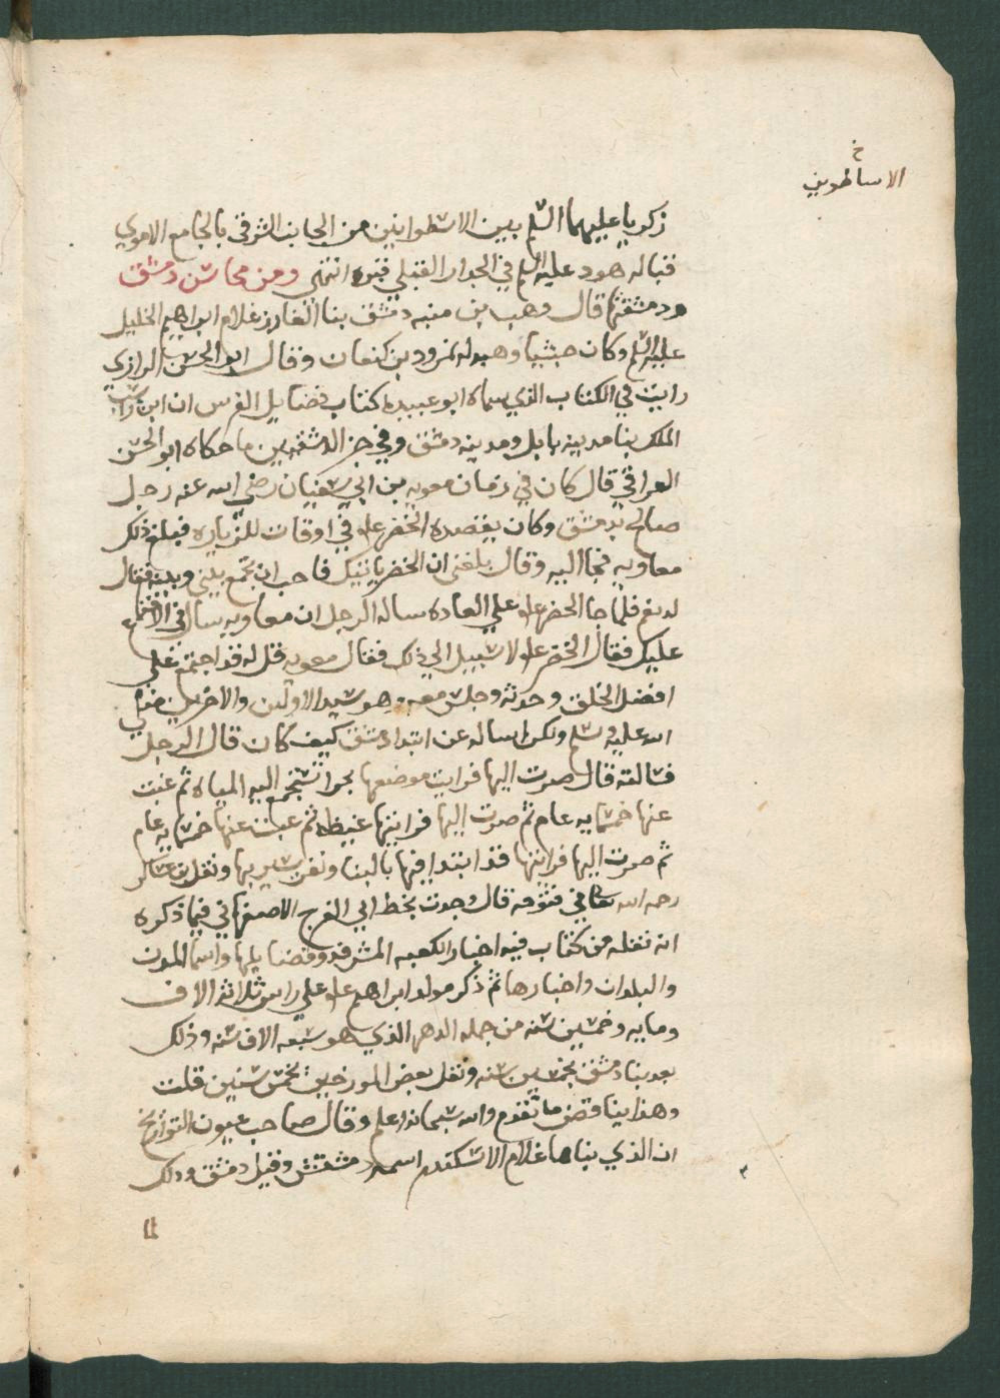 خ
الاساطوين
زكريا عليهما السلم بين الاسطوانين من الجانب الشرقي بالجامع الاموي
قباله هود عليه السلم في الجدار القبلي قبره انتهى ومن محاسن دمشق
ودمشقتها قال وهب بن منبه دمشق بناها الغازر غلام ابراهيم الخليل
عليه السلم وكان حبشيا وهبه له نمرود بن كنعان وقال ابو الحسن الرازي
رايت في الكتاب الذي سماه ابو عبيده كتاب فضايل الفرس ان
الملك بنا مدينه بابل ومدينه دمشق وفي جز الدمشقيين ما حكاه ابو الحسن
العراقي قال كان في زمان معويه بن ابي سفيان رضي الله عنه رجل
صالح بدمشق وكان يقصده الخضر علم في اوقات للزياره فبلغ ذلك
معاويه فجا اليه وقال بلغني ان الخضر ياتيك فاحب ان تجمع بيني وبينه فقال
له نعم فلما جا الخضر علم علي العاده ساله الرجل ان معاويه سال في الاجتماع
عليك فقال الخضر علم لا سبيل الي ذلك فقال معويه قل له قد اجتمع علي
افضل الخلق وحدثه وجلس معه وهو سيد الاولين والاخرين صلي
الله عليه وسلم ولكن اساله عن ابتدا دمشق كيف كان قال الرجل
فسالته قال صرت اليها فرايت موضعها بحرا تستجمع اليه المياه ثم غبت
عنها خمسمايه عام ثم صرت اليها فرايتها غيظه ثم غبت عنها خمسمايه عام
ثم صرت اليها فرايتها قد ابتدا فيها بالبنا ونفر يسير بها ونقل بن عساكر
رحمه الله تعالى في قال وجدت بخط ابي الفرج الاصفهاني فيما ذكره
انه نقله من كتاب فيه اخبار الكعبه المشرفه وفضايلها واسما المدن
والبلدان واخبارها ثم ذكر مولد ابراهيم علم علي راس ثلاثة الاف
ومايه وخمسين سنه من جمله الدهر الذي هو سبعه الاف سنه وذلك
بعد بنا دمشق بخمس سنه ونقل بعض المورخين بخمس سنين قلت
وهذا يناقض ما تقدم والله سبحانه اعلم وقال صاحب عيون التواريخ
ان الذي بناها غلام الاسكندر اسمه دمشقش وقيل دمشق وذلك
لما